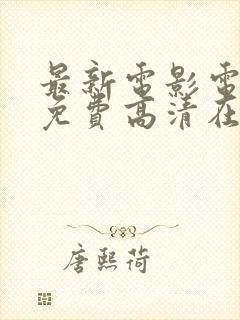 最新電影電
免費高清在
唐熙荷